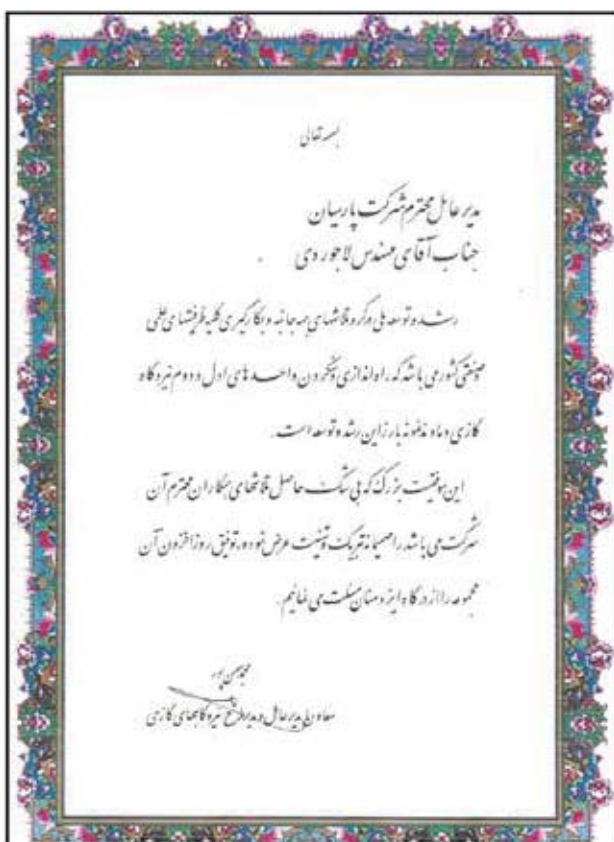 بسمه تعالی
مدیر عامل محترم شرکت پارسیان
جناب آقای مهندس لاجوردی
رشد و توسعه ملی درگرو تلاشهای همه جانبه و بکارگیری کلیه ظرفیتهای علمی
و صنعتی کشور می باشد که راه اندازی و سنکرون واحدهای اول و دوم نیروگاه
گازی دماوند نمونه بارز این رشد و توسعه است.
این موفقیت بزرگ که بی شک حاصل تلاشهای همکاران محترم آن
شرکت می باشد را صمیمانه تبریک و تهنیت عرض نموده و توفیق روزافزون آن
مجموعه را از درگاه ایزد منان مسئلت می نمائیم.
محمد حسن پور
معاون مدیر عامل و مدیر طرح نیروگاههای گازی